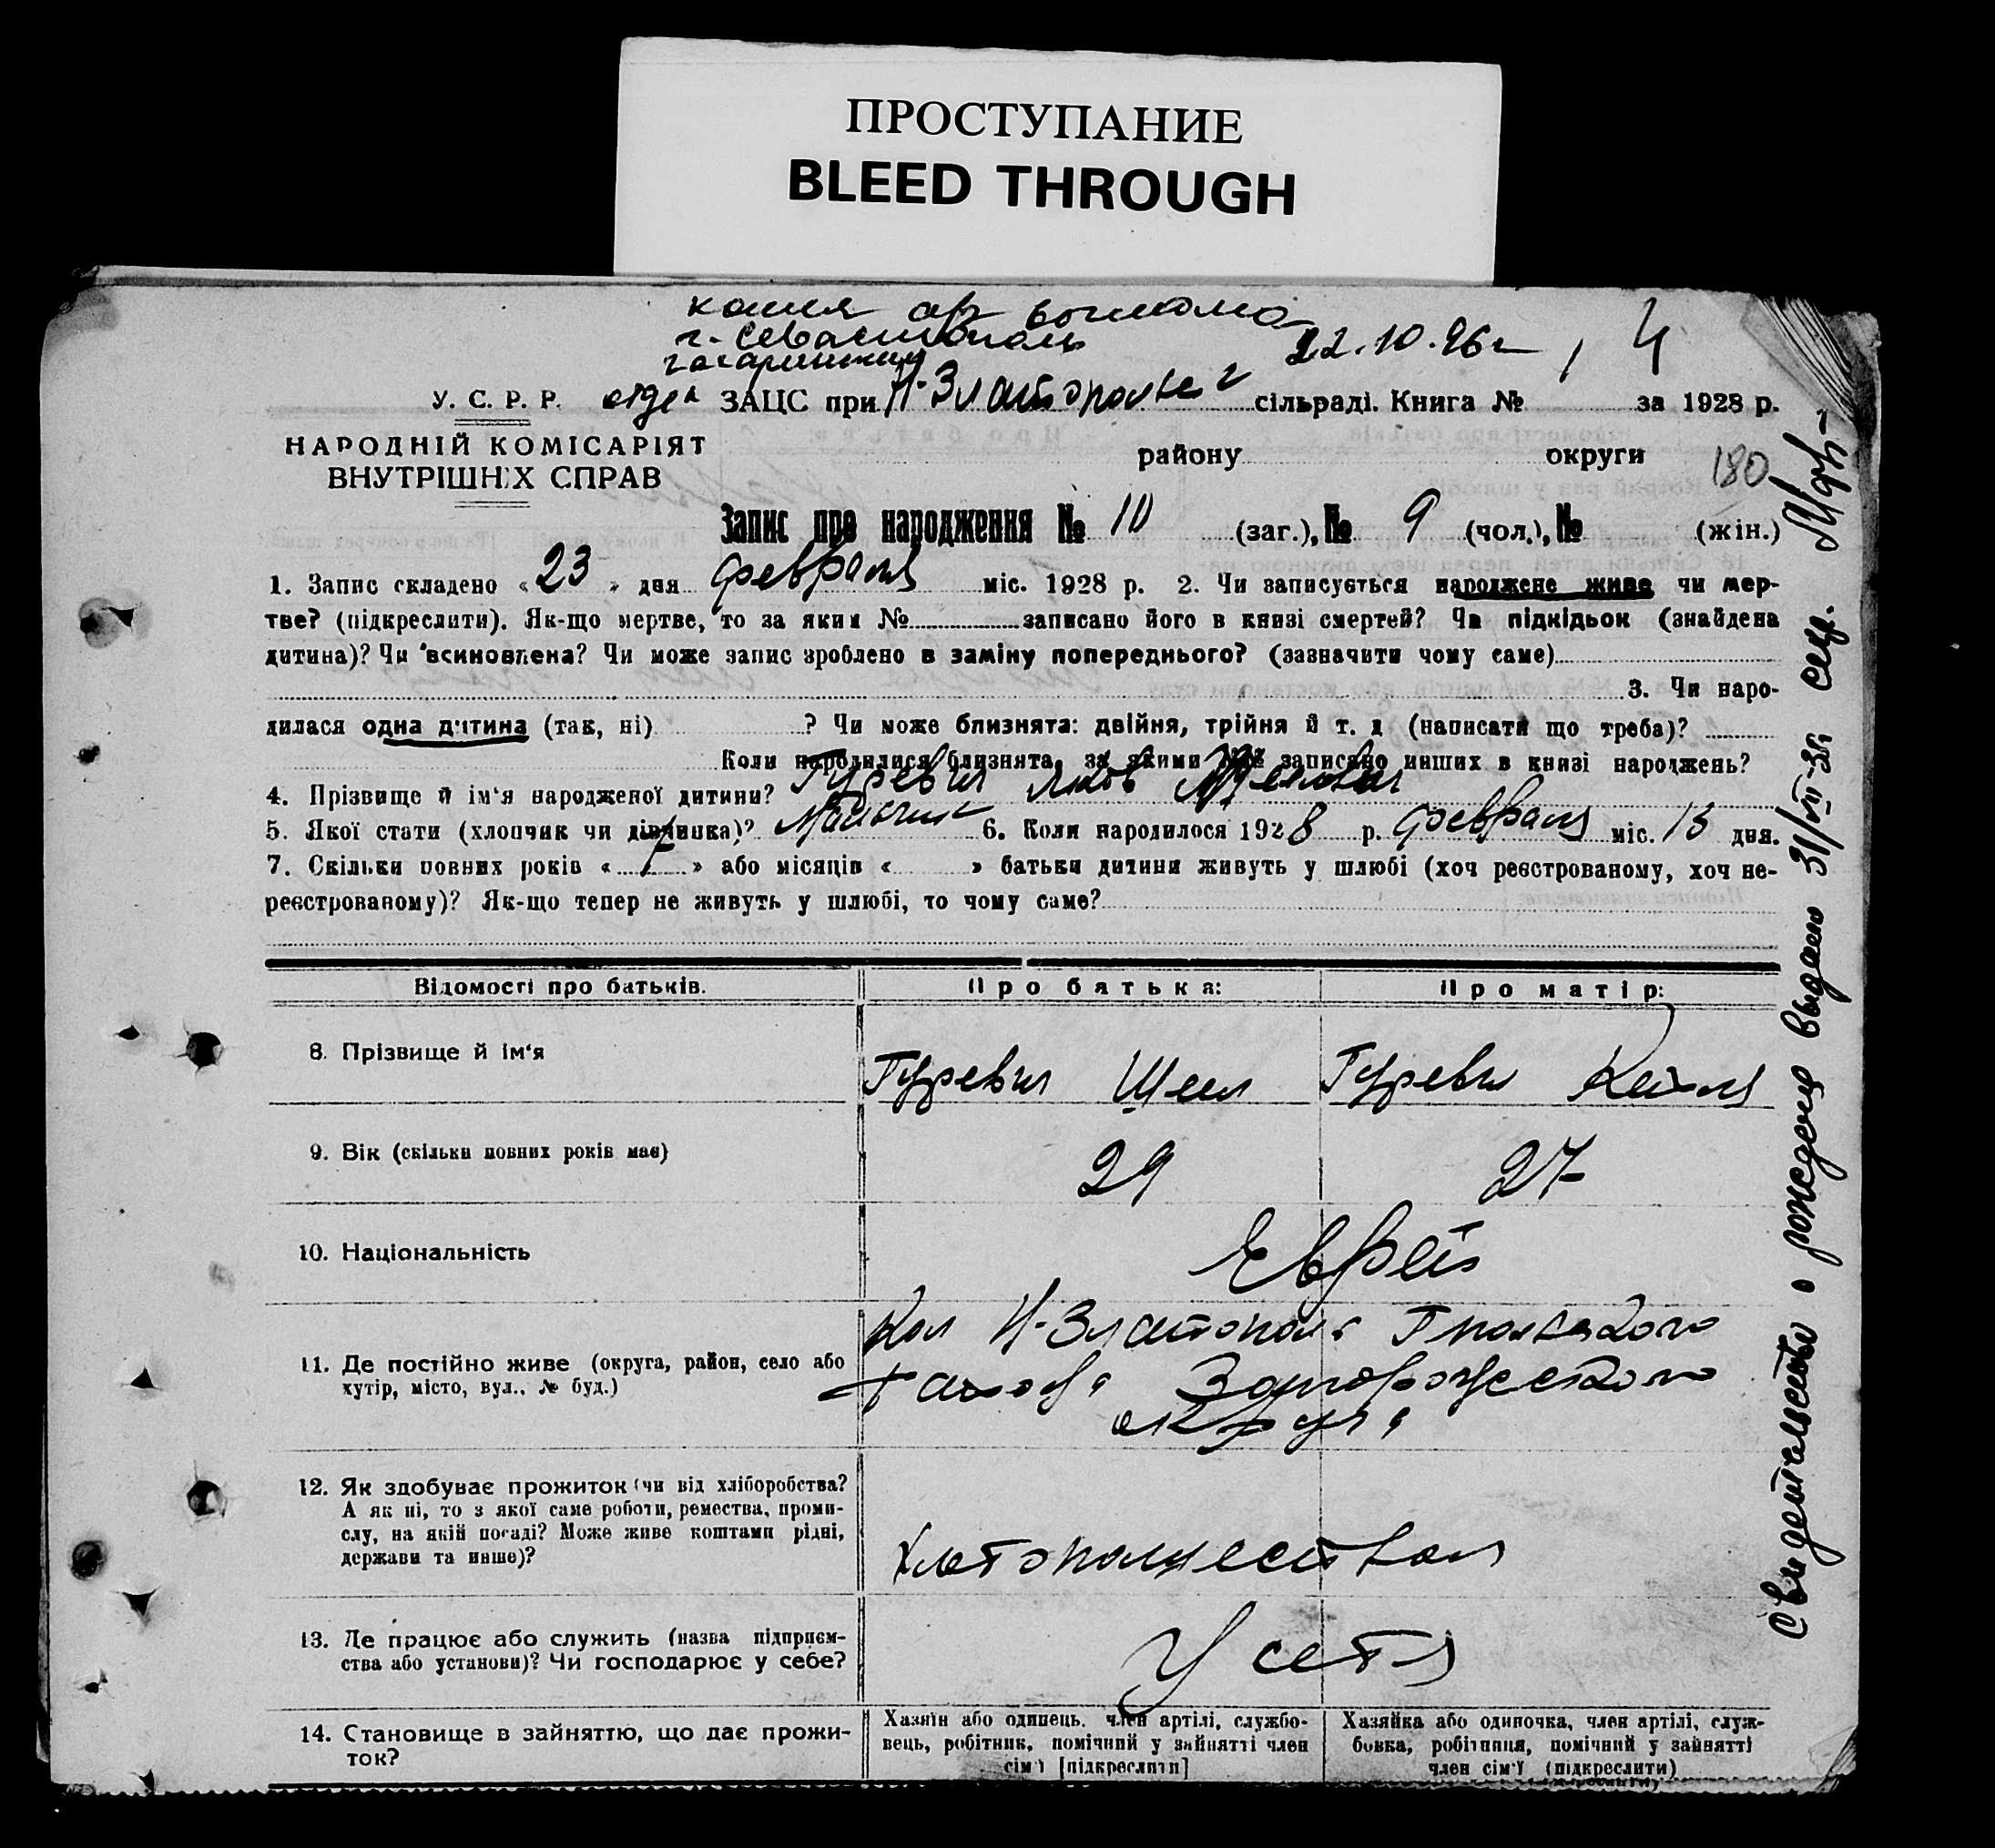 ПРОСТУПАНИЕ
BLEED THROUGH
копия
г. Севастополь
22.10.96г 4
У. С. Р. Р. отдел ЗАЦС при Н-Златополь сільраді. Книга № за 1928 р.
НАРОДНІЙ КОМІСАРІЯТ
ВНУТРІШНІХ СПРАВ
району округи 180
Запис про народження № 10 (заг.), № 9 (чол.), № (жін.)
1. Запис складено «23» дня февраля міс. 1928 р. 2. Чи записується народжене живе чи мер-
тве? (підкреслити). Як-що мертве, то за яким № записано його в книзі смертей? Чи підкідьок (знайдена
дитина)? Чи всиновлена? Чи може запис зроблено в заміну попереднього? (зазначити чому саме)
3. Чи наро-
дилася одна дитина (так, ні) ? Чи може близнята: двійня, трійня й т. д (написати що треба)?
Коли народилися близнята, за якими №№ записано инших в книзі народжень?
4. Прізвище й ім‘я народженої дитини? Гуревич Яков
5. Якої стати (хлопчик чи дівчинка)? Мальчик 6. Коли народилося 1928 р. февраля міс. 13 дня.
7. Скільки повних років « » або місяців « » батьки дитини живуть у шлюбі (хоч реєстрованому, хоч не-
реєстрованому)? Як-що тепер не живуть у шлюбі, то чому саме?
Відомості про батьків. Про батька: Про матір:
8. Прізвище й ім‘я Гуревич Гуревич
9. Вік (скільки повних років має) 29 27
10. Національність Еврей
11. Де постійно живе (округа, район, село або
хутір, місто, вул., № буд.)
Кол Н-Златополь
Запорожского
округа
12. Як здобуває прожиток (чи від хліборобства?
А як ні, то з якої саме роботи, ремества, проми-
слу, на якій посаді? Може живе коштами рідні,
держави та инше)?
хлебопашеством
13. Де працює або служить (назва підприєм-
ства або установи)? Чи господарює у себе?
У себя
14. Становище в зайняттю, що дає прожи-
ток?
Хазяїн або одинець, член артілі, службо-
вець, робітник, помічний у зайнятті член
сім‘ї [підкреслити]
Хазяйка або одиночка, член артілі, служ-
бовка, робітниця, помічний у зайнятті
член сім‘ї (підкреслити)
Свидетельство о рождении выдано 31/VII-35г